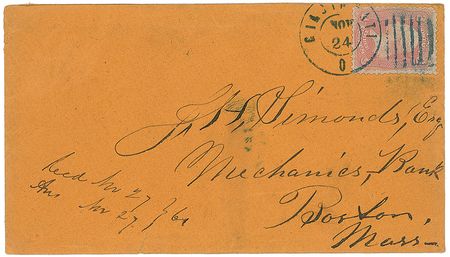 CINCINNATI
NOV
24
O
J. H. Simonds, Esq
Mechanics, Bank
Boston,
Mass
Recd Nov 27/61
Ans Nov 27,